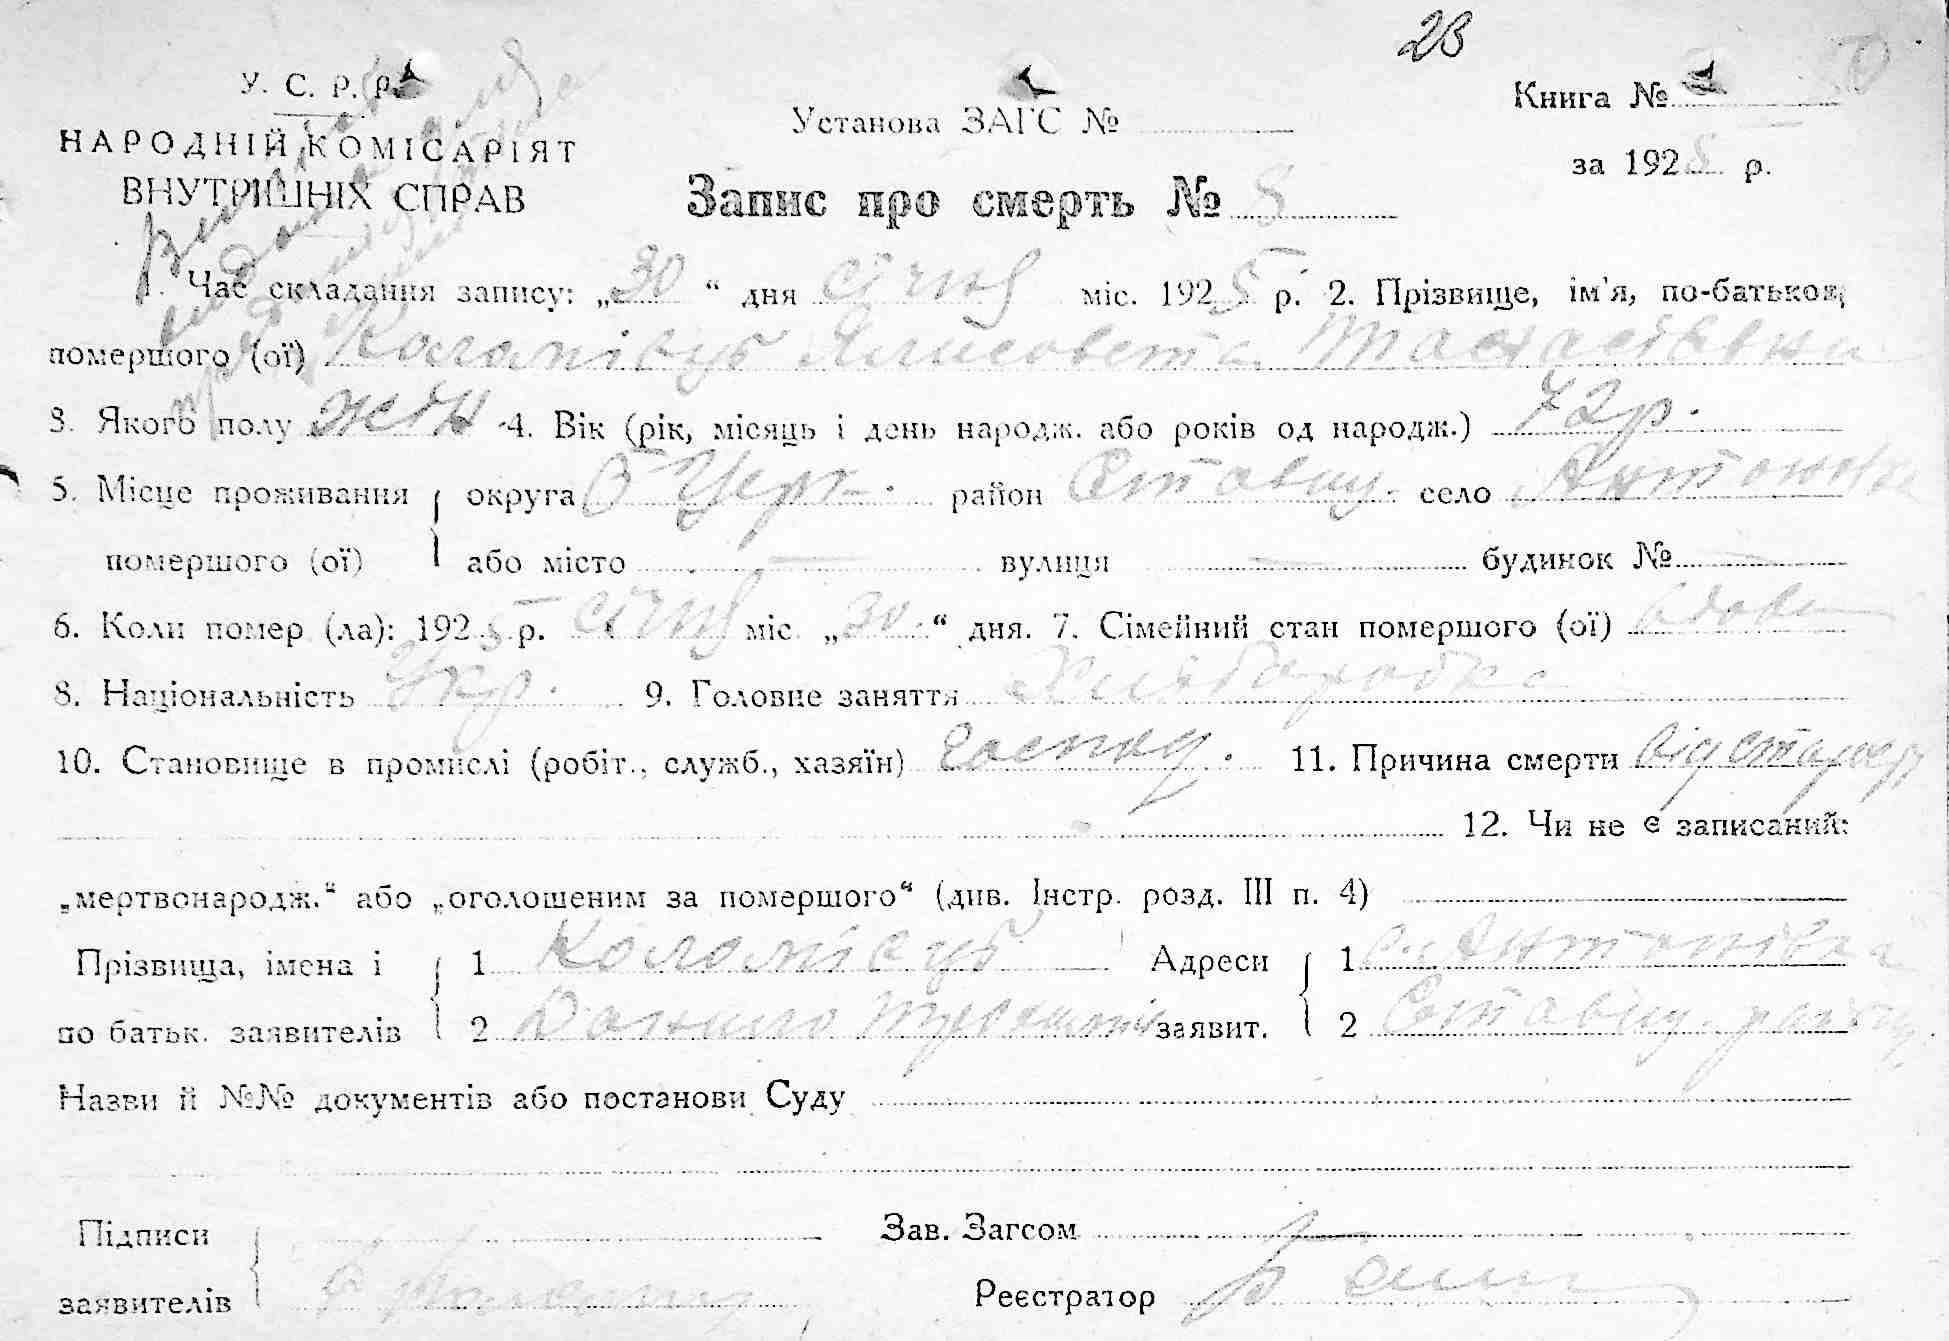 23
У. С. Р. Р.
НАРОДНІЙ КОМІСАРІЯТ
ВНУТРІШНІХ СПРАВ
Установа ЗАГС №
Книга №
за 1925 р.
Запис про смерть № 8
1. Час складання запису: „30“ дня січня міс. 1925 р. 2. Прізвище, ім'я, по-батькові
помершого (ої)
3. Якого полу жін 4. Вік (рік, місяць і день народж. або років од народж.) 72 р.
5. Місце проживання округа Б Церк. район Ставищ. село Антонівка
помершого (ої) або місто — вулиця — будинок № —
6. Коли помер (ла): 1925 р. січня міс. „30“ дня. 7. Сімейний стан помершого (ої) вдова
8. Національність Укр. 9. Головне заняття Хліборобка
10. Становище в промислі (робіт., служб., хазяїн) господ. 11. Причина смерти від старос
12. Чи не є записаний:
„мертвонародж.“ або „оголошеним за помершого“ (див. Інстр. розд. III п. 4)
Прізвища, імена і 1 Коломієць Адреси 1 с. Антонівка
по батьк. заявителів 2 Данило заявит. 2 Ставищ. району
Назви й №№ документів або постанови Суду
Підписи Зав. Загсом
заявителів Реєстратор